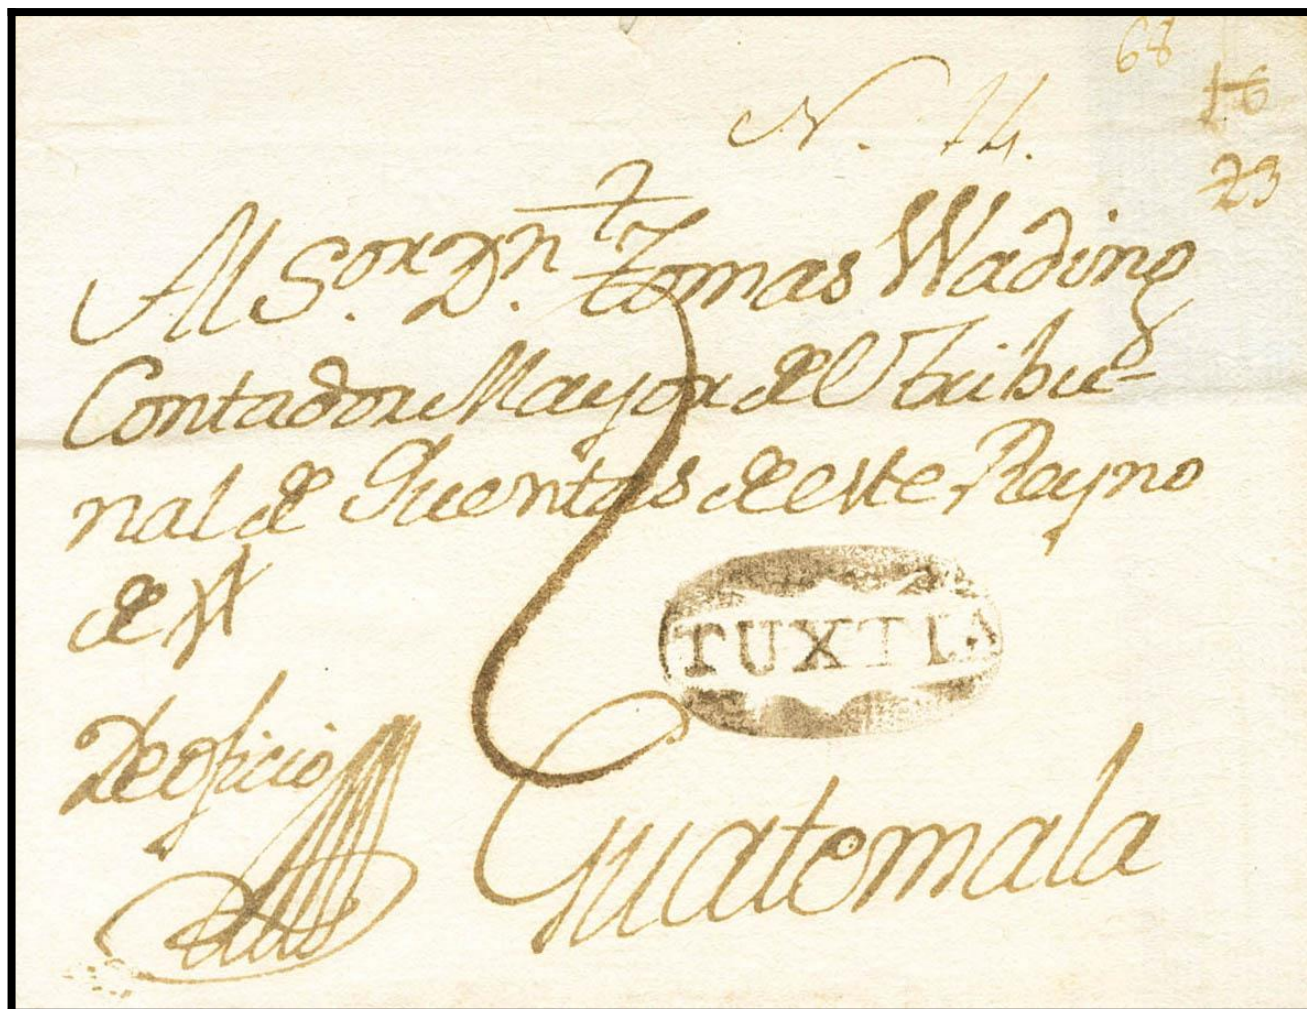 68
N. 14.
16
23
Al S.or D.n Tomas Wading
Contador Mayor del Tribu-
nal de Quentas de este Reyno
de
TUXTLA
De oficio
Guatemala